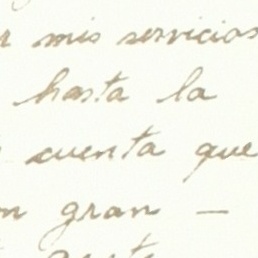 r mis servicios
hasta la
cuenta que
n gran —